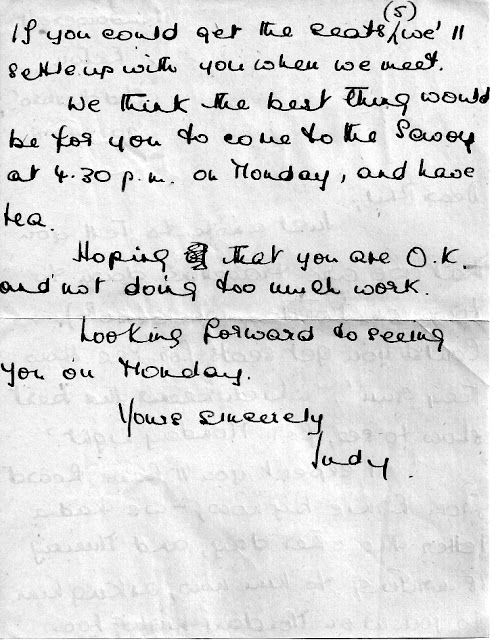 (5)
If you could get the seats, we'll
settle up with you when we meet.
We think the best thing would
be for you to come to the Savoy
at 4.30 p.m. on Monday, and have
tea.
Hoping that you are O.K.
and not doing too much work.
Looking forward to seeing
you on Monday.
Yours sincerely
Judy.